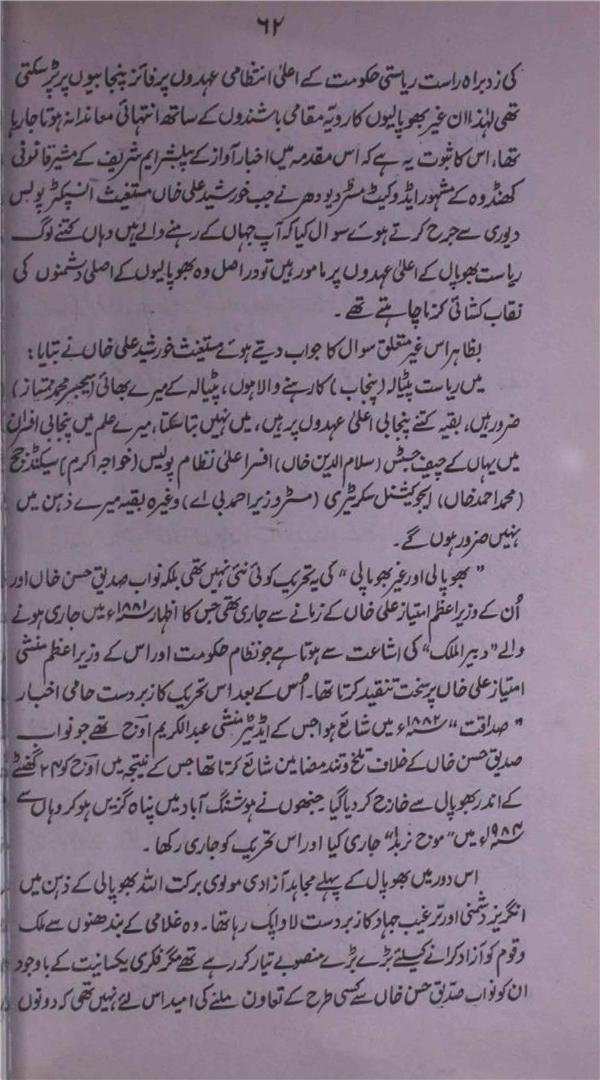 ۶۲
کی زد براہ راست ریاستی حکومت کے اعلیٰ انتظامی عہدوں پر فائز پنجابیوں پر پڑ سکتی
تھی لہٰذا ان غیر بھوپالیوں کا رویہ مقامی باشندوں کے ساتھ انتہائی معاندانہ ہوتا جا رہا
تھا، اس کا ثبوت یہ ہے کہ اس مقدمہ میں اخبار آواز کے پبلشر ایم شریف کے مشیر قانونی
کھنڈوہ کے مشہور ایڈوکیٹ مسٹر دیودھر نے جب خورشید علی خاں مستغیث انسپکٹر پولس
دیوری سے جرح کرتے ہوئے سوال کیا کہ آپ جہاں کے رہنے والے ہیں وہاں کتنے لوگ
ریاست بھوپال کے اعلیٰ عہدوں پر مامور ہیں تو دراصل وہ بھوپالیوں کے اصلی دشمنوں کی
نقاب کشائی کرنا چاہتے تھے۔
بظاہر اس غیر متعلق سوال کا جواب دیتے ہوئے مستغیث خورشید علی خاں نے بتایا:
میں ریاست پٹیالہ (پنجاب) کا رہنے والا ہوں، پٹیالہ کے میرے بھائی (میجر محمد ممتیاز)
ضرور ہیں، بقیہ کتنے پنجابی اعلیٰ عہدوں پر ہیں، میں نہیں بتا سکتا، میرے علم میں پنجابی افسران
میں یہاں کے چیف جسٹس (سلام الدین خاں) افسر اعلیٰ نظام پولیس (خواجہ اکرم) سیکنڈ جج
(محمد احمد خاں) ایجوکیشنل سکریٹری (مسٹر وزیر احمد بی اے) وغیرہ بقیہ میرے ذہن میں
نہیں ضرور ہوں گے۔
"بھوپالی اور غیر بھوپالی" کی یہ تحریک کوئی نئی نہیں تھی بلکہ نواب صدیق حسن خاں اور
اُن کے وزیر اعظم امتیاز علی خاں کے زمانے سے جاری تھی جس کا اظہار ۱۸۸۱ء میں جاری ہونے
والے "دبیر الملک" کی اشاعت سے ہوتا ہے جو نظام حکومت اور اس کے وزیر اعظم منشی
امتیاز علی خاں پر سخت تنقید کرتا تھا۔ اُس کے بعد اس تحریک کا زبردست حامی اخبار
"صداقت" ۱۸۸۲ء میں شائع ہوا جس کے ایڈیٹر منشی عبد الکریم اوج تھے جو نواب
صدیق حسن خاں کے خلاف تلخ و تند مضامین شائع کرتا تھا جس کے نتیجہ میں اوج کو ۲۴ گھنٹے
کے اندر بھوپال سے خارج کر دیا گیا جنھوں نے ہوشنگ آباد میں پناہ گزیں ہو کر وہاں سے
میں "موج نربدا" جاری کیا اور اس تحریک کو جاری رکھا۔
اس دور میں بھوپال کے پہلے مجاہد آزادی مولوی برکت اللہ بھوپالی کے ذہن میں
انگریز دشمنی اور ترغیب جہاد کا زبردست لاوا پک رہا تھا۔ وہ غلامی کے بندھنوں سے ملک
و قوم کو آزاد کرانے کیلئے بڑے بڑے منصوبے تیار کر رہے تھے مگر فکری یکسانیت کے باوجود
ان کو نواب صدیق حسن خاں سے کسی طرح کے تعاون ملنے کی امید اس لئے نہیں تھی کہ دونوں